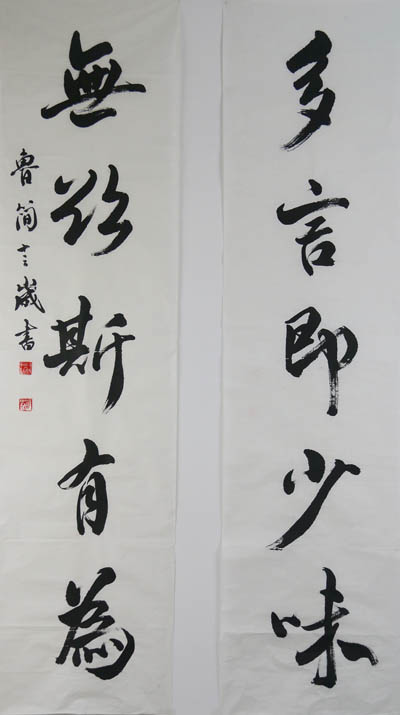 多言即少味
無欲斯有為
魯简十三歲書